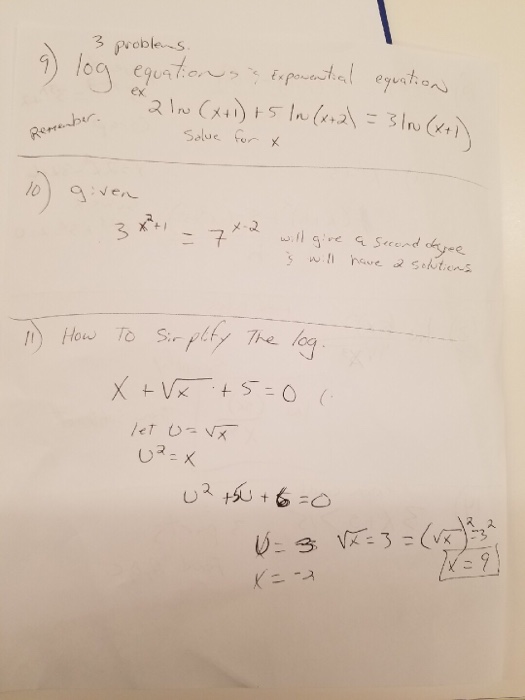 3 problems.
9) log equations & Exponential equation
ex
2 ln (x+1) + 5 ln (x+2) = 3 ln (x+1)
Remember.
Solve for x
10) given
3^{x^2+1} = 7^{x-2}
will give a second degree
& will have 2 solutions
11) How To Simplify The log.
X + √x + 5 = 0
let U = √x
U² = x
U² + 5U + 6 = 0
U = 3 √x = 3 = (√x)² = 3²
X = -2
x = 9